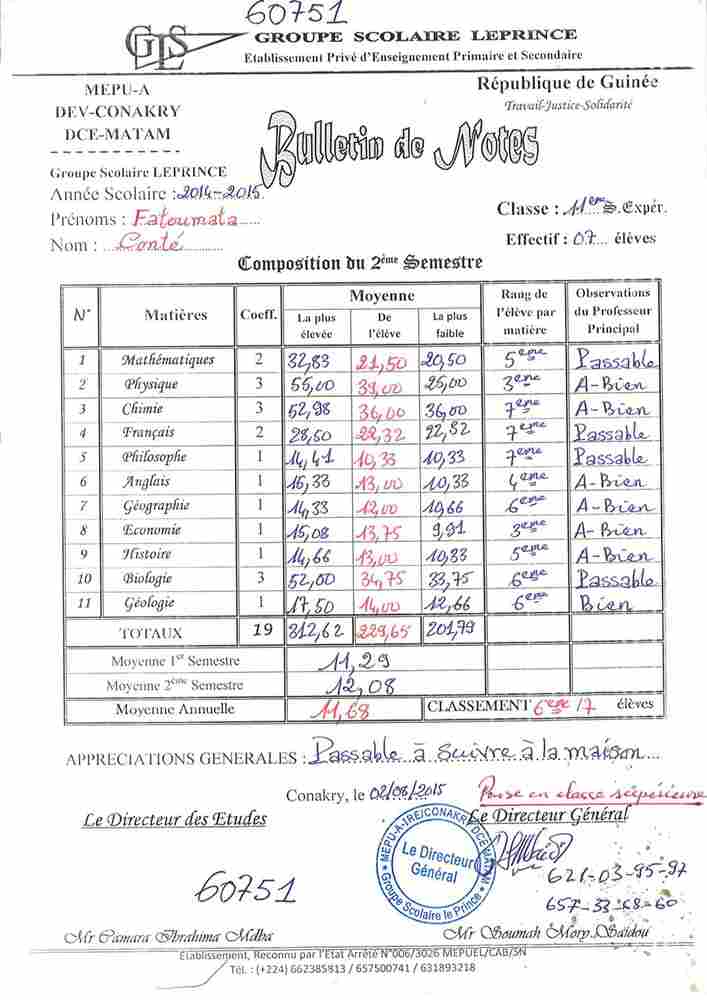 60751
GROUPE SCOLAIRE LEPRINCE
Etablissement Privé d'Enseignement Primaire et Secondaire
MEPU-A
DEV-CONAKRY
DCE-MATAM
République de Guinée
Travail-Justice-Solidarité
Bulletin de Notes
Groupe Scolaire LEPRINCE
Année Scolaire : 2014-2015
Prénoms : Fatoumata
Nom : Conté
Classe : 11ème S.Expér.
Effectif : 07 élèves
Composition du 2ème Semestre
N° Matières Coeff. Moyenne Rang de l'élève par matière Observations du Professeur Principal
La plus élevée De l'élève La plus faible
1 Mathématiques 2 32,83 21,50 20,50 5eme Passable
2 Physique 3 55,00 39,00 25,00 3eme A-Bien
3 Chimie 3 52,98 36,00 36,00 7eme A-Bien
4 Français 2 28,50 22,32 22,32 7eme Passable
5 Philosophe 1 14,41 10,33 10,33 7eme Passable
6 Anglais 1 15,33 13,00 10,33 4eme A-Bien
7 Géographie 1 14,33 12,00 10,66 6eme A-Bien
8 Economie 1 15,08 13,75 9,91 3eme A-Bien
9 Histoire 1 14,66 13,00 10,83 5eme A-Bien
10 Biologie 3 52,00 34,75 33,75 6eme Passable
11 Géologie 1 17,50 14,00 12,66 6eme Bien
TOTAUX 19 312,62 229,65 201,79
Moyenne 1er Semestre 11,29
Moyenne 2ème Semestre 12,08
Moyenne Annuelle 11,68 CLASSEMENT 6eme /7 élèves
APPRECIATIONS GENERALES : Passable à suivre à la maison
Conakry, le 02/08/2015
Passe en classe supérieure
Le Directeur des Etudes
Le Directeur Général
MEPU-A-IRE/CONAKRY DCE MATAM
Le Directeur Général
Groupe Scolaire le Prince
621-03-95-97
657-33-68-60
60751
Mr Camara Ibrahima Mdba
Mr Soumah Mory Saïdou
Etablissement, Reconnu par l'Etat Arrêté N°006/3026 MEPUEL/CAB/SN
Tél. : (+224) 662385813 / 657500741 / 631893218